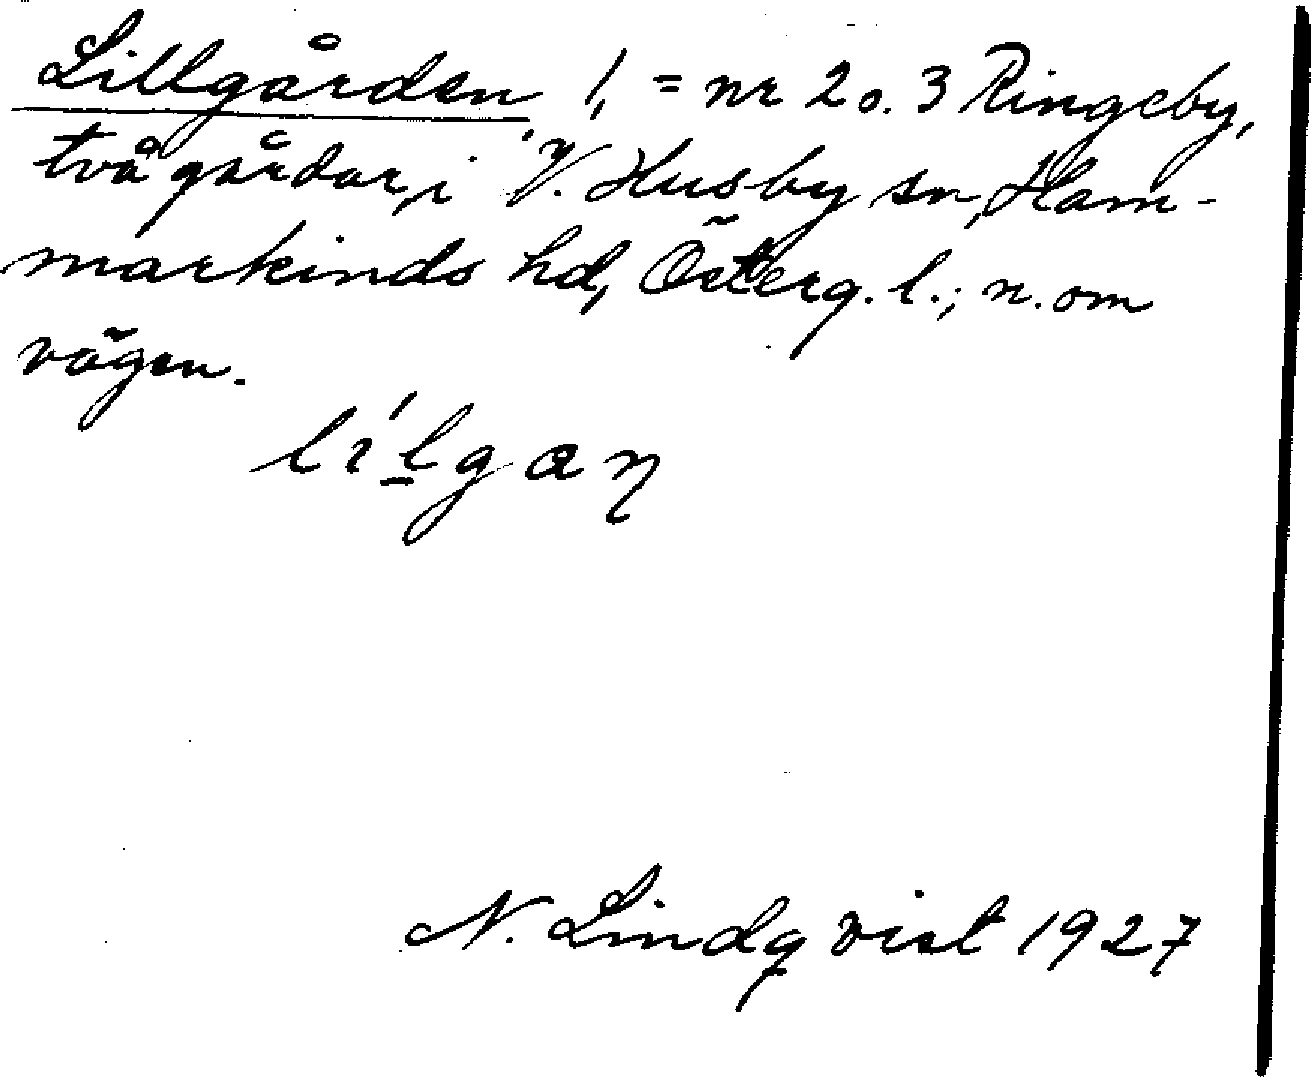 Lillgården !, = nr 2 o. 3 Ringeby,
två gårdar, i V. Husby sn, Ham-
markinds hd, Österg. l.; n. om
vägen.
N. Lindqvist 1927